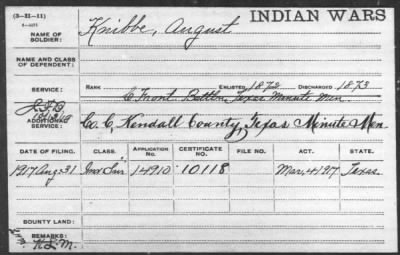 (3-31-11)
INDIAN WARS
NAME OF SOLDIER: Knibbe, August
NAME AND CLASS OF DEPENDENT:
SERVICE: RANK ENLISTED 1872 DISCHARGED 1873
C Front. Battln Texas Minute Men
ADDITIONAL SERVICE: Co. C, Kendall County, Texas Minute Men.
DATE OF FILING. CLASS. APPLICATION NO. CERTIFICATE NO. FILE NO. ACT. STATE.
1917 Aug 31 Inv Sur. 14910 10118 Mar. 4 1917 Texas.
BOUNTY LAND:
REMARKS: